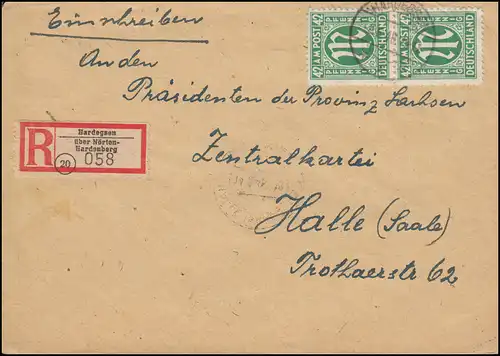 Einschreiben
42 AM POST 42
PFENNIG PFENNIG
DEUTSCHLAND
42 AM POST 42
PFENNIG PFENNIG
DEUTSCHLAND
An den
Präsidenten der Provinz Sachsen
R
Hardegsen
über Nörten-
Hardenberg
20
058
Zentralkartei
Halle (Saale)
Trothaerstr 62